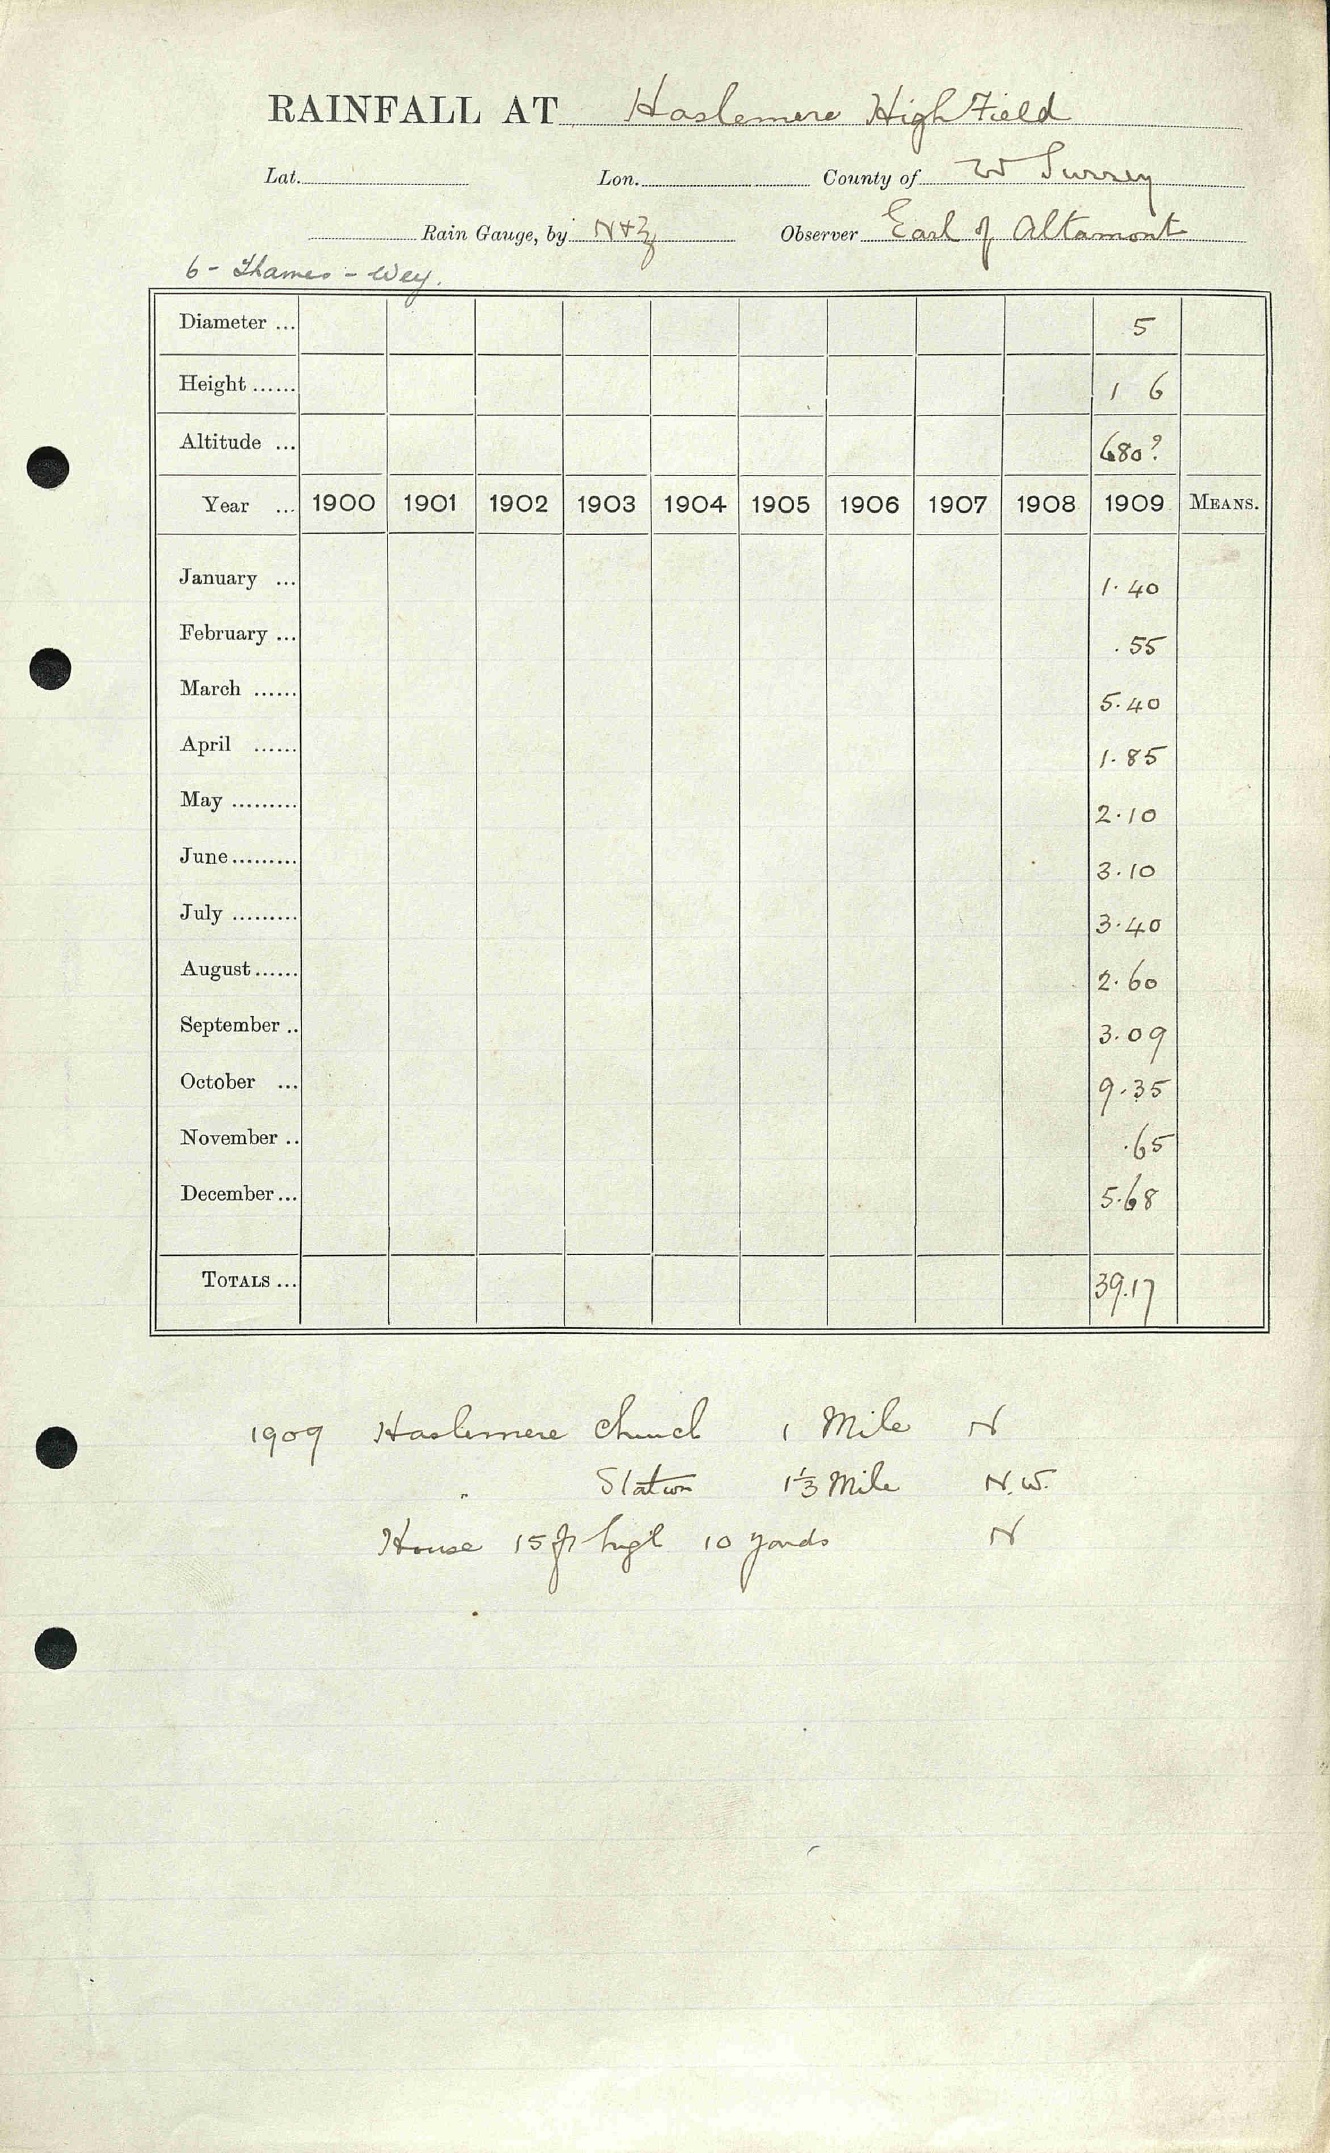 RAINFALL AT Haslemere High Field
Lat. Lon. County of W Surrey
Rain Gauge, by N+Z Observer Earl of Altamont
6 - Thames - Wey.
Diameter ... 5
Height ...... 1 6
Altitude ... 680?
Year ... 1900 1901 1902 1903 1904 1905 1906 1907 1908 1909 MEANS.
January ... 1.40
February ... .55
March ...... 5.40
April ...... 1.85
May ......... 2.10
June ......... 3.10
July ......... 3.40
August ...... 2.60
September .. 3.09
October ... 9.35
November .. .65
December ... 5.68
TOTALS ... 39.17
1909 Haslemere Church 1 Mile N
" Station 1 1/3 Mile N.W.
House 15 ft high 10 yards N